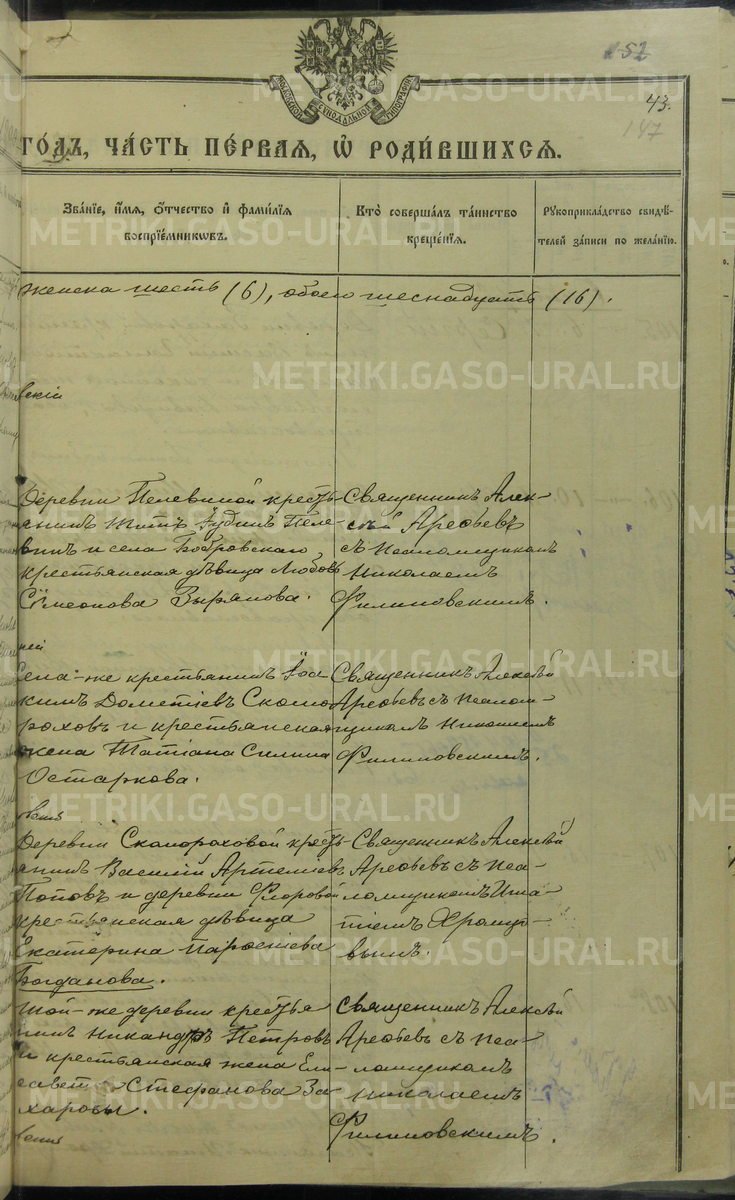 152
43.
187
СѴНОДАЛЬНОЙ
ТИПОГРАФІИ
ГО́ДЪ, ЧА́СТЬ ПЕ́РВАЯ, Ѡ҆ РОДИ́ВШИХСЯ.
Зва́нїе, и҆́мя, ѻ҆́тчество и҆ фами́лїя
воспрїе́мникѡвъ.
Кто̀ соверша́лъ та́инство
креще́нїя.
Рꙋкоприкла́дство свидѣ́-
телей за́писи по жела́нїю.
женска шесть (6), обоего шеснадцать (16).
Деревни Пелевиной кресть-
янинъ Титъ Іудинъ Пеле-
винъ и села Бобровскаго
крестьянская дѣвица Любовь
Сѵмеонова Зырянова.
Священникъ Алек-
сѣй Арефьевъ
съ псаломщикомъ
Николаемъ
Филиповскимъ.
Села-же крестьянинъ Іоа-
кимъ Дометіевъ Скомо-
роховъ и крестьянская
жена Татіана Силина
Остаркова.
Священникъ Алексѣй
Арефьевъ съ псалом-
щикомъ Николаемъ
Филиповскимъ.
Деревни Скомороховой кресть-
янинъ Василій Артемьевъ
Поповъ и деревни Флоровой
крестьянская дѣвица
Екатерина Пароеніева
Богданова.
Священникъ Алексѣй
Арефьевъ съ пса-
ломщикомъ Игна-
тіемъ Хромцо-
вымъ.
Той-же деревни крестья-
нинъ Никандръ Петровъ
и крестьянская жена Ели-
савета Стефанова За-
харовы.
Священникъ Алексѣй
Арефьевъ съ пса-
ломщикомъ
Николаемъ
Филиповскимъ.
METRIKI.GASO-URAL.RU